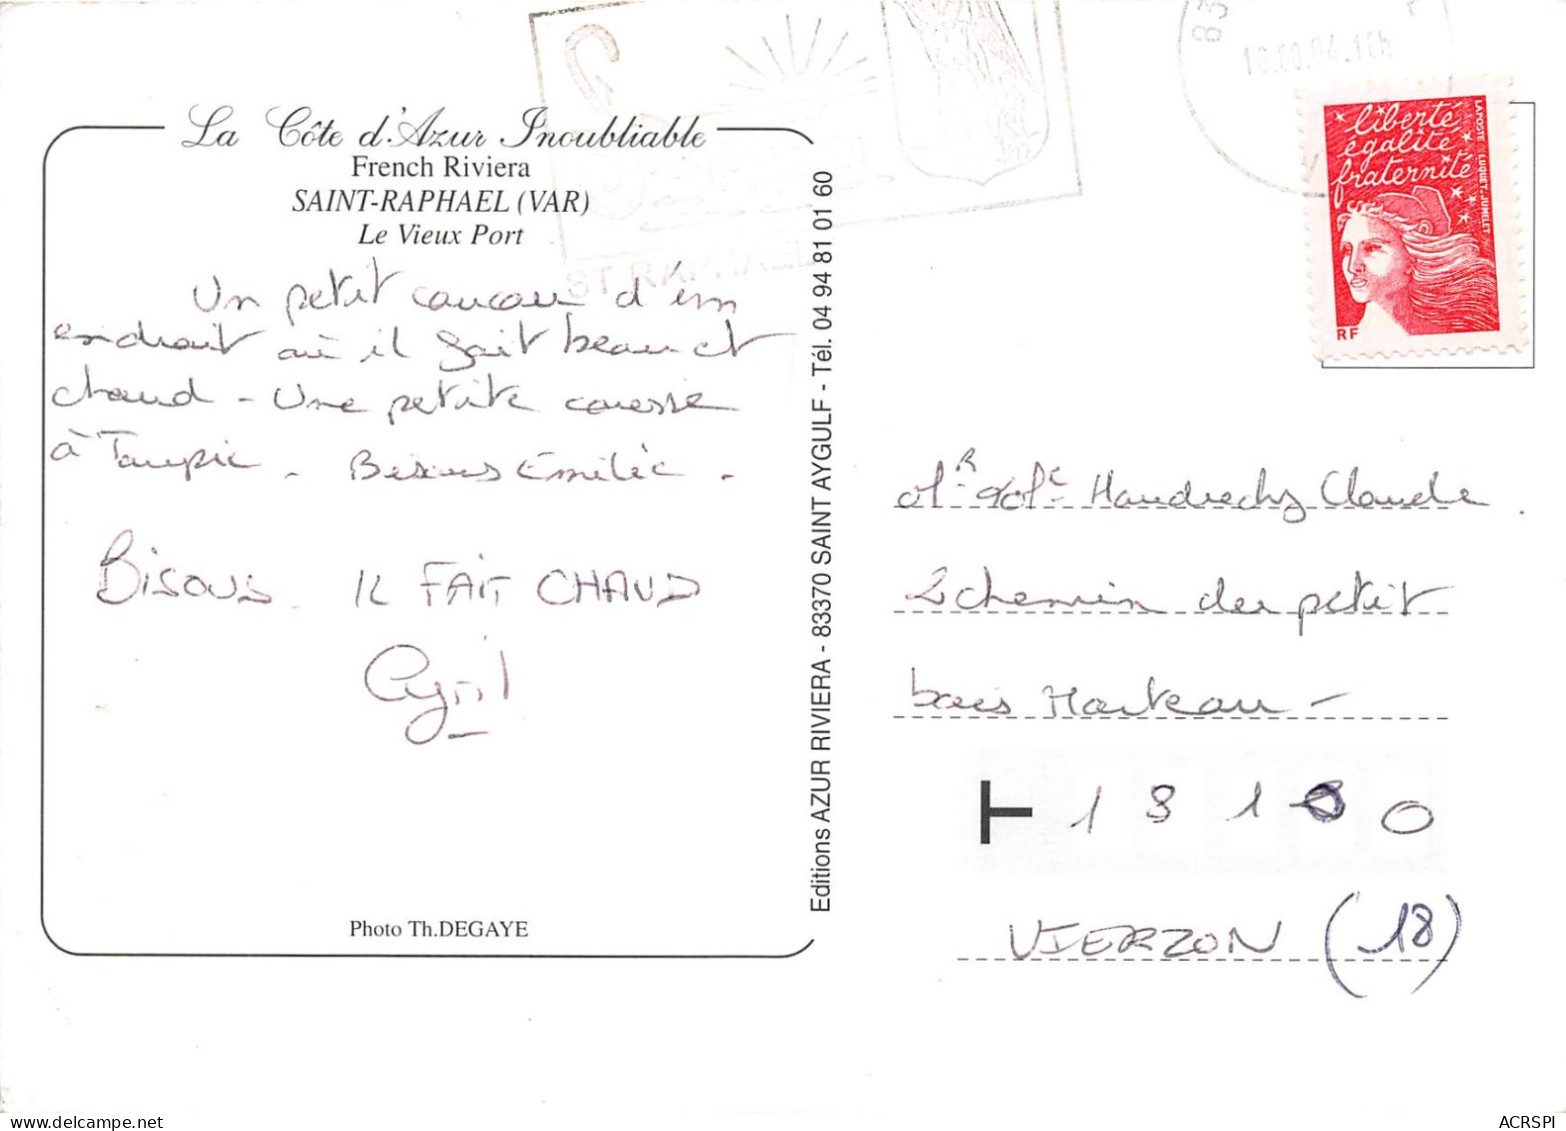 La Côte d'Azur Inoubliable
French Riviera
SAINT-RAPHAEL (VAR)
Le Vieux Port
Un petit coucou d'un
endroit où il fait beau et
chaud - Une petite caresse
à Taupie . Bisous Emilie .
BISOUS IL FAIT CHAUD
Cyril
Photo Th.DEGAYE
Editions AZUR RIVIERA - 83370 SAINT AYGULF - Tél. 04 94 81 01 60
ST RAPHAEL
83
liberté
égalité
fraternité
LA POSTE LUQUET-JUMELET
RF
Claude
2 chemin du petit
bois Marteau -
T 1 8 1 0 0
VIERZON (18)
ACRSPI